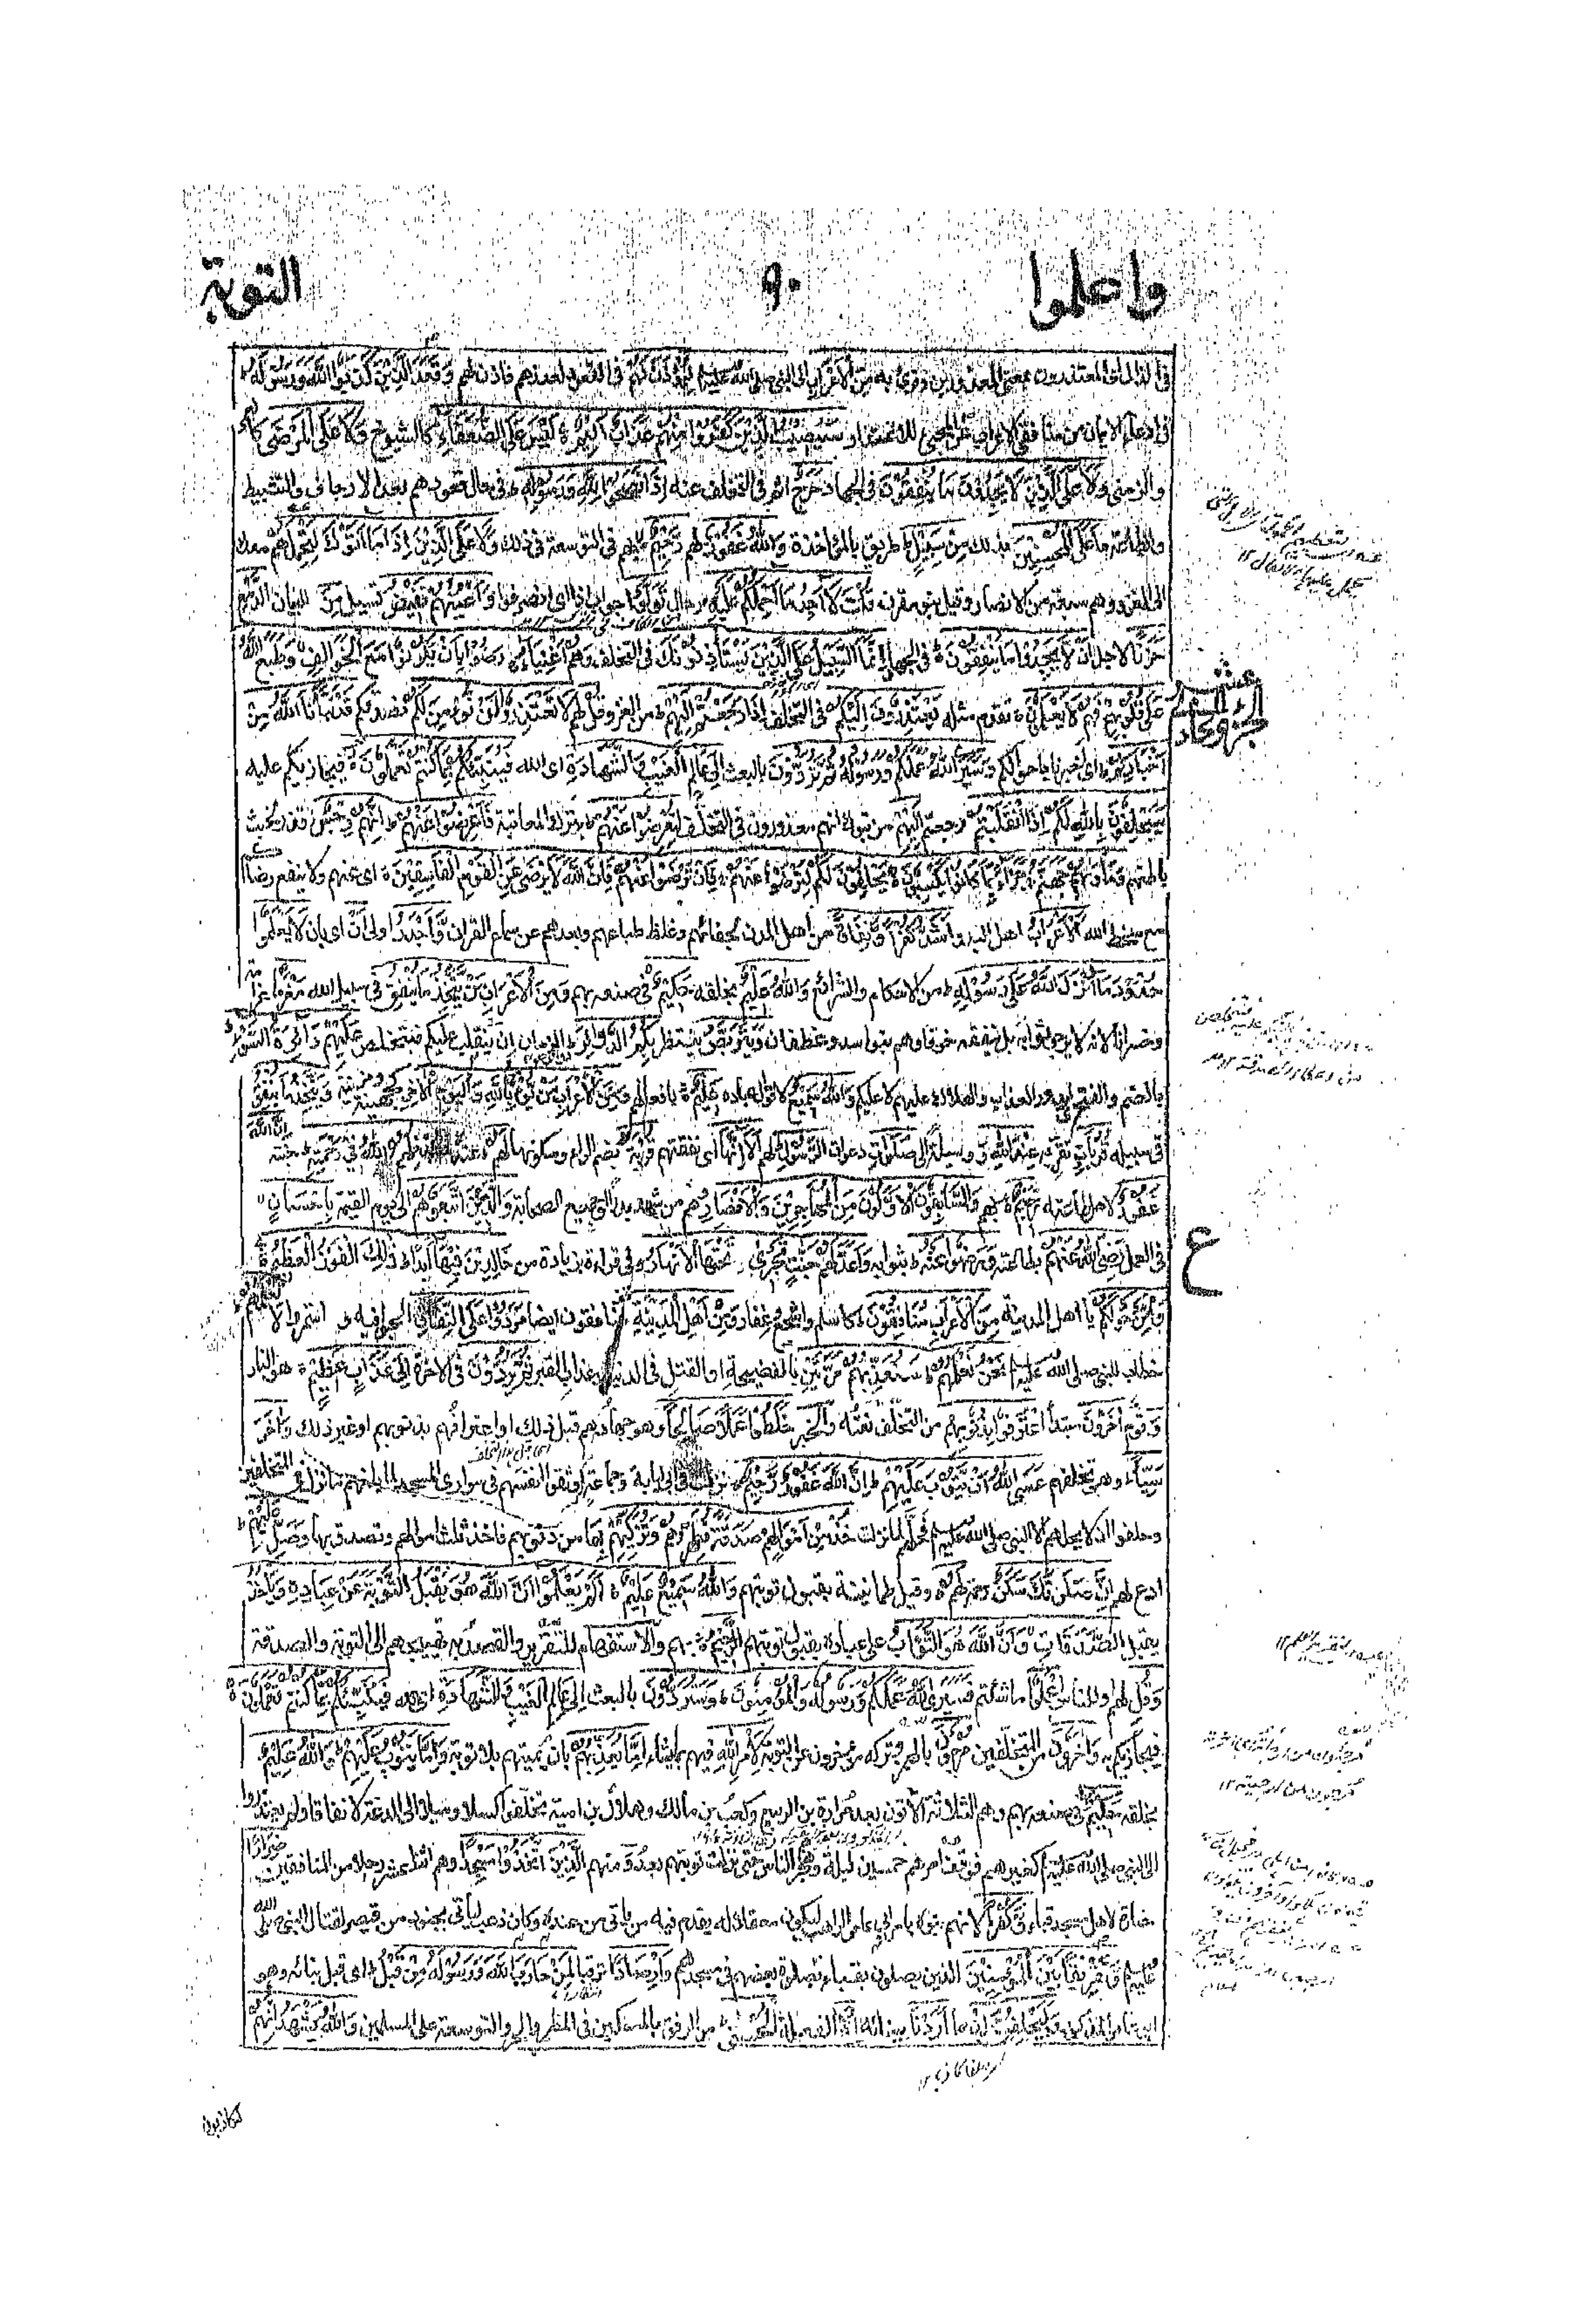 واعلموا
٩٠
التوبة
فى الذال اى المعتذرون بمعنى المعذورين وقرئ به مِنَ الْأَعْرَابِ الى النبى صلى الله عليه وسلم لِيُؤْذَنَ لَهُمْ فى القعود لعذرهم فاذن لهم وَقَعَدَ الَّذِينَ كَذَبُوا اللَّهَ وَرَسُولَهُ ط
فى ادعاء الايمان من منافقى الاعراب عن المجئ للاعتذار سَيُصِيبُ الَّذِينَ كَفَرُوا مِنْهُمْ عَذَابٌ أَلِيمٌ ٥ لَيْسَ عَلَى الضُّعَفَاءِ كالشيوخ وَلَا عَلَى الْمَرْضَى كالعمى
والزمنى وَلَا عَلَى الَّذِينَ لَا يَجِدُونَ مَا يُنْفِقُونَ فى الجهاد حَرَجٌ اثم فى التخلف عنه إِذَا نَصَحُوا لِلَّهِ وَرَسُولِهِ ط فى حال قعودهم بعدم الارجاف والتثبيط
والطاعة مَا عَلَى الْمُحْسِنِينَ بذلك مِنْ سَبِيلٍ ط طريق بالمؤاخذة وَاللَّهُ غَفُورٌ لهم رَحِيمٌ ٥ بهم فى التوسعة فى ذلك وَلَا عَلَى الَّذِينَ إِذَا مَا أَتَوْكَ لِتَحْمِلَهُمْ معك
الى الغزو وهم سبعة من الانصار وقيل بنو مقرن قُلْتَ لَا أَجِدُ مَا أَحْمِلُكُمْ عَلَيْهِ ص حال تَوَلَّوْا جواب اذا اى انصرفوا وَأَعْيُنُهُمْ تَفِيضُ تسيل مِنَ للبيان الدَّمْعِ
حَزَنًا لاجل أَلَّا يَجِدُوا مَا يُنْفِقُونَ ٥ فى الجهاد إِنَّمَا السَّبِيلُ عَلَى الَّذِينَ يَسْتَأْذِنُونَكَ فى التخلف وَهُمْ أَغْنِيَاءُ ج رَضُوا بِأَنْ يَكُونُوا مَعَ الْخَوَالِفِ وَطَبَعَ اللَّهُ
عَلَى قُلُوبِهِمْ فَهُمْ لَا يَعْلَمُونَ ٥ تقدم مثله يَعْتَذِرُونَ إِلَيْكُمْ فى التخلف إِذَا رَجَعْتُمْ إِلَيْهِمْ ط من الغزو قُلْ لهم لَا تَعْتَذِرُوا لَنْ نُؤْمِنَ لَكُمْ نصدقكم قَدْ نَبَّأَنَا اللَّهُ مِنْ
أَخْبَارِكُمْ ط اى اخبرنا باحوالكم وَسَيَرَى اللَّهُ عَمَلَكُمْ وَرَسُولُهُ ثُمَّ تُرَدُّونَ بالبعث إِلَى عَالِمِ الْغَيْبِ وَالشَّهَادَةِ اى الله فَيُنَبِّئُكُمْ بِمَا كُنْتُمْ تَعْمَلُونَ ٥ فيجازيكم عليه
سَيَحْلِفُونَ بِاللَّهِ لَكُمْ إِذَا انْقَلَبْتُمْ رجعتم إِلَيْهِمْ من تبوك انهم معذورون فى التخلف لِتُعْرِضُوا عَنْهُمْ ط بترك المعاتبة فَأَعْرِضُوا عَنْهُمْ ط إِنَّهُمْ رِجْسٌ قذر لخبث
باطنهم وَمَأْوَاهُمْ جَهَنَّمُ ج جَزَاءً بِمَا كَانُوا يَكْسِبُونَ ٥ يَحْلِفُونَ لَكُمْ لِتَرْضَوْا عَنْهُمْ ج فَإِنْ تَرْضَوْا عَنْهُمْ فَإِنَّ اللَّهَ لَا يَرْضَى عَنِ الْقَوْمِ الْفَاسِقِينَ ٥ اى عنهم ولا ينفع رضاكم
مع سخط الله الْأَعْرَابُ اهل البدو أَشَدُّ كُفْرًا وَنِفَاقًا من اهل المدن لجفائهم وغلظ طباعهم وبعدهم عن سماع القران وَأَجْدَرُ اولى أَنْ اى بان لَا يَعْلَمُوا
حُدُودَ مَا أَنْزَلَ اللَّهُ عَلَى رَسُولِهِ ط من الاحكام والشرائع وَاللَّهُ عَلِيمٌ بخلقه حَكِيمٌ ٥ فى صنعه بهم وَمِنَ الْأَعْرَابِ مَنْ يَتَّخِذُ مَا يُنْفِقُ فى سبيل الله مَغْرَمًا غرامة
وخسرانا لانه لا يرجو ثوابه بل ينفقه خوفا وهم بنو اسد وغطفان وَيَتَرَبَّصُ ينتظر بِكُمُ الدَّوَائِرَ ط دوائر الزمان ان ينقلب عليكم فيتخلص عَلَيْهِمْ دَائِرَةُ السَّوْءِ ط
بالضم والفتح اى يدور العذاب والهلاك عليهم لا عليكم وَاللَّهُ سَمِيعٌ لاقوال عباده عَلِيمٌ ٥ بافعالهم وَمِنَ الْأَعْرَابِ مَنْ يُؤْمِنُ بِاللَّهِ وَالْيَوْمِ الْآخِرِ كجهينة ومزينة وَيَتَّخِذُ مَا يُنْفِقُ
فى سبيله قُرُبَاتٍ تقربه عِنْدَ اللَّهِ وَ وسيلة الى صَلَوَاتِ دعوات الرَّسُولِ ط له أَلَا إِنَّهَا اى نفقتهم قُرْبَةٌ بضم الراء وسكونها لَهُمْ ط عنده سَيُدْخِلُهُمُ اللَّهُ فِي رَحْمَتِهِ ط جنته إِنَّ اللَّهَ
غَفُورٌ لاهل طاعته رَحِيمٌ ٥ بهم وَالسَّابِقُونَ الْأَوَّلُونَ مِنَ الْمُهَاجِرِينَ وَالْأَنْصَارِ وهم من شهد بدرا او جميع الصحابة وَالَّذِينَ اتَّبَعُوهُمْ الى يوم القيمة بِإِحْسَانٍ
فى العمل رَضِيَ اللَّهُ عَنْهُمْ بطاعته وَرَضُوا عَنْهُ ط بثوابه وَأَعَدَّ لَهُمْ جَنَّاتٍ تَجْرِي تَحْتَهَا الْأَنْهَارُ وفى قراءة بزيادة من خَالِدِينَ فِيهَا أَبَدًا ط ذَلِكَ الْفَوْزُ الْعَظِيمُ ٥
وَمِمَّنْ حَوْلَكُمْ يا اهل المدينة مِنَ الْأَعْرَابِ مُنَافِقُونَ ط كاسلم واشجع وغفار وَمِنْ أَهْلِ الْمَدِينَةِ منافقون ايضا مَرَدُوا عَلَى النِّفَاقِ لجوا فيه و استمروا لَا تَعْلَمُهُمْ
خطاب للنبى صلى الله عليه وسلم نَحْنُ نَعْلَمُهُمْ ط سَنُعَذِّبُهُمْ مَرَّتَيْنِ بالفضيحة او القتل فى الدنيا وعذاب القبر ثُمَّ يُرَدُّونَ فى الاخرة إِلَى عَذَابٍ عَظِيمٍ ٥ هو النار
وَ قوم آخَرُونَ مبتدأ اعْتَرَفُوا بِذُنُوبِهِمْ من التخلف نعته والخبر خَلَطُوا عَمَلًا صَالِحًا وهو جهادهم قبل ذلك او اعترافهم بذنوبهم او غير ذلك وَآخَرَ
سَيِّئًا ط وهو تخلفهم عَسَى اللَّهُ أَنْ يَتُوبَ عَلَيْهِمْ ط إِنَّ اللَّهَ غَفُورٌ رَحِيمٌ ٥ نزلت فى ابى لبابة وجماعة اوثقوا انفسهم فى سوارى المسجد لما بلغهم ما نزل فى المتخلفين
وحلفوا ان لا يحلهم الا النبى صلى الله عليه وسلم فحلهم لما نزلت خُذْ مِنْ أَمْوَالِهِمْ صَدَقَةً تُطَهِّرُهُمْ وَتُزَكِّيهِمْ بِهَا من ذنوبهم فاخذ ثلث اموالهم وتصدق بها وَصَلِّ عَلَيْهِمْ ط
ادع لهم إِنَّ صَلَاتَكَ سَكَنٌ رحمة لَهُمْ ط وقيل طمانينة بقبول توبتهم وَاللَّهُ سَمِيعٌ عَلِيمٌ ٥ أَلَمْ يَعْلَمُوا أَنَّ اللَّهَ هُوَ يَقْبَلُ التَّوْبَةَ عَنْ عِبَادِهِ وَيَأْخُذُ
يقبل الصَّدَقَاتِ وَأَنَّ اللَّهَ هُوَ التَّوَّابُ على عباده بقبول توبتهم الرَّحِيمُ ٥ بهم والاستفهام للتقرير والقصد به تهييجهم الى التوبة والصدقة
وَقُلِ لهم او للناس اعْمَلُوا ما شئتم فَسَيَرَى اللَّهُ عَمَلَكُمْ وَرَسُولُهُ وَالْمُؤْمِنُونَ ط وَسَتُرَدُّونَ بالبعث إِلَى عَالِمِ الْغَيْبِ وَالشَّهَادَةِ اى الله فَيُنَبِّئُكُمْ بِمَا كُنْتُمْ تَعْمَلُونَ ٥
فيجازيكم به وَآخَرُونَ من المتخلفين مُرْجَوْنَ بالهمز وتركه مؤخرون عن التوبة لِأَمْرِ اللَّهِ فيهم بما يشاء إِمَّا يُعَذِّبُهُمْ بان يميتهم بلا توبة وَإِمَّا يَتُوبُ عَلَيْهِمْ ط وَاللَّهُ عَلِيمٌ
بخلقه حَكِيمٌ فى صنعه بهم وهم الثلاثة الاتون بعد مرارة بن الربيع وكعب بن مالك وهلال بن امية تخلفوا كسلا وميلا الى الدعة لا نفاقا ولم يعتذروا
الى النبى صلى الله عليه وسلم كغيرهم فوقف امرهم خمسين ليلة وهجرهم الناس حتى نزلت توبتهم بعد وَ منهم الَّذِينَ اتَّخَذُوا مَسْجِدًا وهم اثنا عشر رجلا من المنافقين ضِرَارًا
مضارة لاهل مسجد قباء وَكُفْرًا لانهم بنوه بامر ابى عامر الراهب ليكون معقلا له يقدم فيه من ياتى من عنده وكان ذهب لياتى بجنود من قيصر لقتال النبى صلى الله
عليه وسلم وَتَفْرِيقًا بَيْنَ الْمُؤْمِنِينَ الذين يصلون بقباء بصلوة بعضهم فى مسجدهم وَإِرْصَادًا ترقبا لِمَنْ حَارَبَ اللَّهَ وَرَسُولَهُ مِنْ قَبْلُ ط اى قبل بنائه وهو
ابو عامر المذكور وَلَيَحْلِفُنَّ إِنْ ما أَرَدْنَا ببنائه إِلَّا الفعلة الْحُسْنَى ط من الرفق بالمسكين فى المطر والحر والتوسعة على المسلمين وَاللَّهُ يَشْهَدُ إِنَّهُمْ
لكاذبون
ع